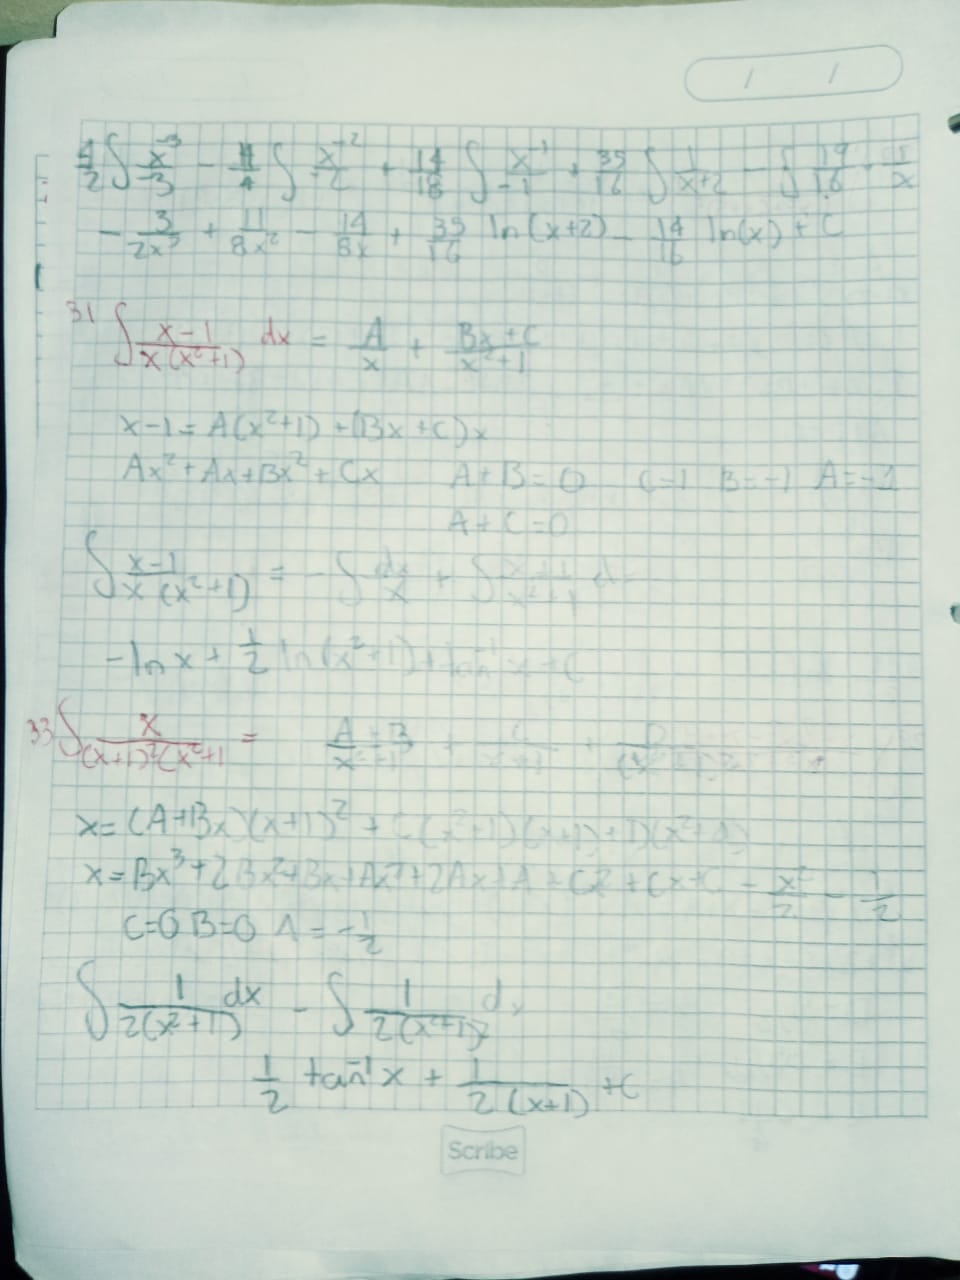 / /
∫ x^-3/-3 - 11/4 ∫ x^-2/-2 + 14/18 ∫ x^-1/-1 + 35/16 ∫ 1/x+2 - ∫ 19/16 · 1/x
- 3/2x³ + 11/8x² - 14/8x + 35/16 ln(x+2) - 14/16 ln(x) + C
31 ∫ x-1/x(x²+1) dx = A/x + Bx+C/x²+1
x-1 = A(x²+1) + (Bx+C)x
Ax² + Ax + Bx² + Cx A+B=0 C=1 B=-1 A=-1
A+C=0
∫ x-1/x(x²+1) = - ∫ dx/x + ∫ x+1/x²+1 d
-ln x + 1/2 ln(x²+1) + tan^-1 x + C
33 ∫ x/(x+1)²(x²+1 =
x = (A+Bx)(x+1)² + C(x²+1)(x+1) + D(x²+1)
x = Bx³ + 2Bx² + Bx + Ax² + 2Ax + A + C2 + Cx + C - x²/2 - 1/2
C=0 B=0 A = -1/2
∫ 1/2(x²+1) dx - ∫ 1/2(x²+1)² dx
1/2 tan^-1 x + 1/2(x+1) + C
Scribe